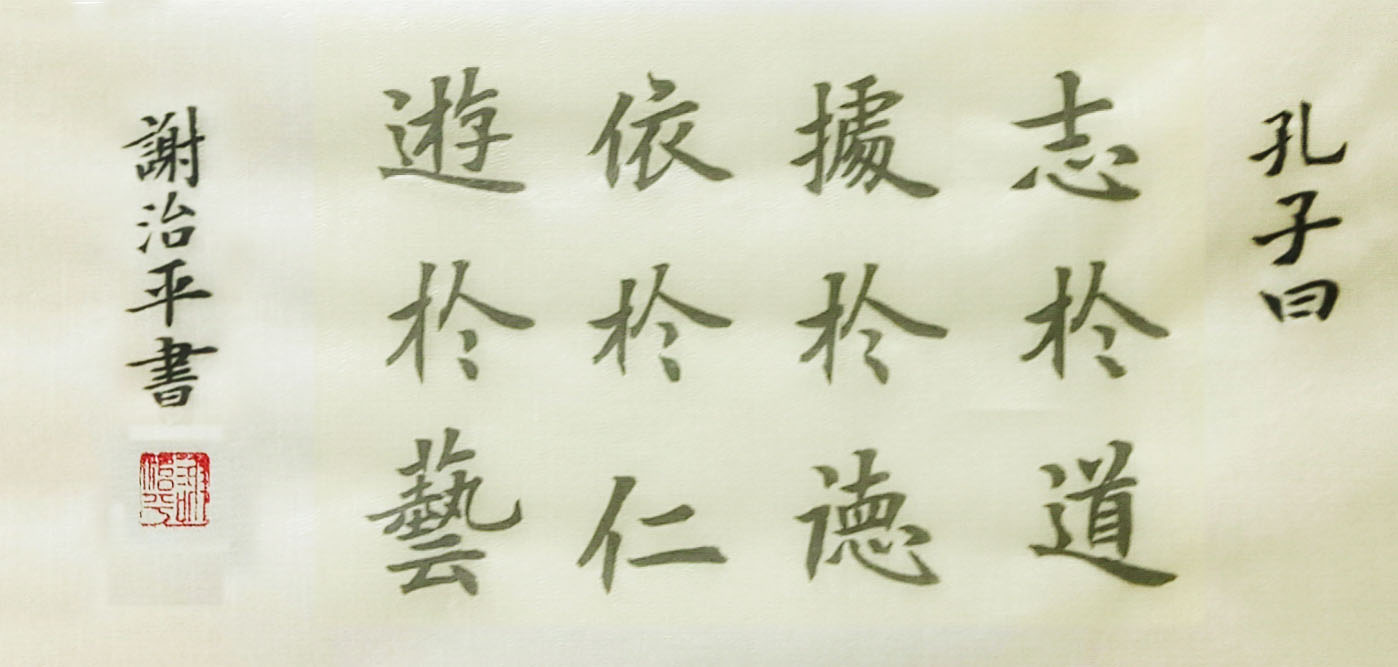 孔子曰
志於道
據於德
依於仁
遊於藝
謝治平書